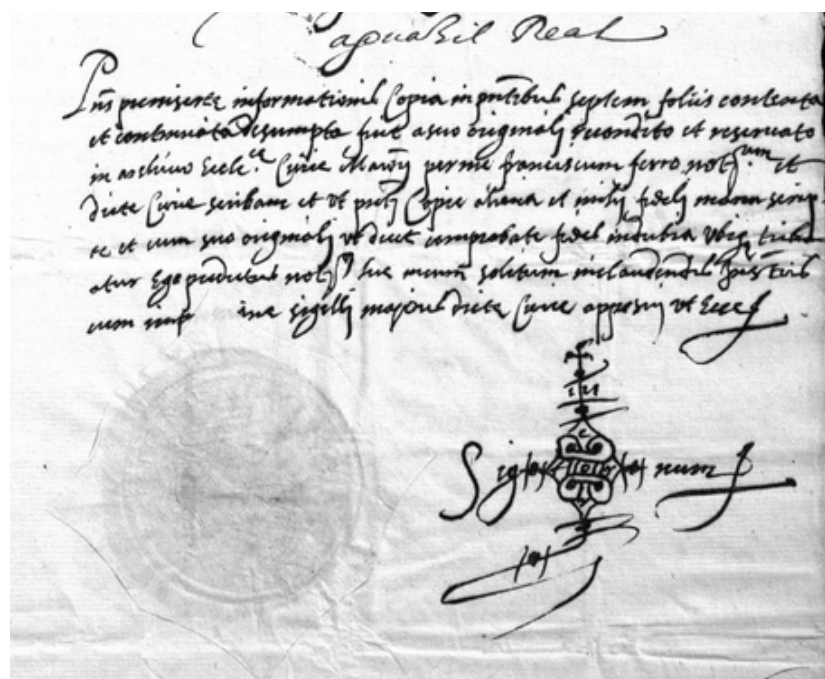 aguasil Real
Pñs preinserte informationis Copia in pñtibus septem foliis contenta
et continuata desumpta fuit a suo originali recondito et reservato
in archivo Eccl.ce Curie per me franciscum ferro not et
dicte Curie scribam et Vt Copie aliena et mihi fideli manu scrip
te et cum suo originali vt decet comprobate fides indubia Vbiq tribu
atur Ego not hic meum solitum in claudendis
cum sigilli majoris dicte Curie apposui vt Ecce
Sig num